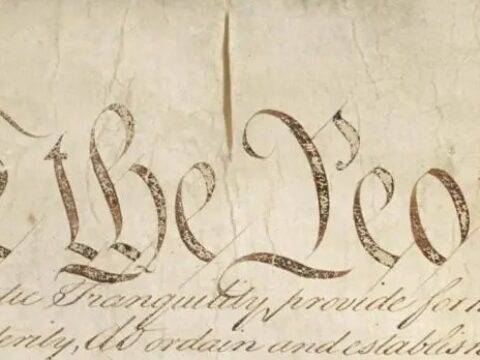 the Peo
Tranquility, provide for
do ordain and establish